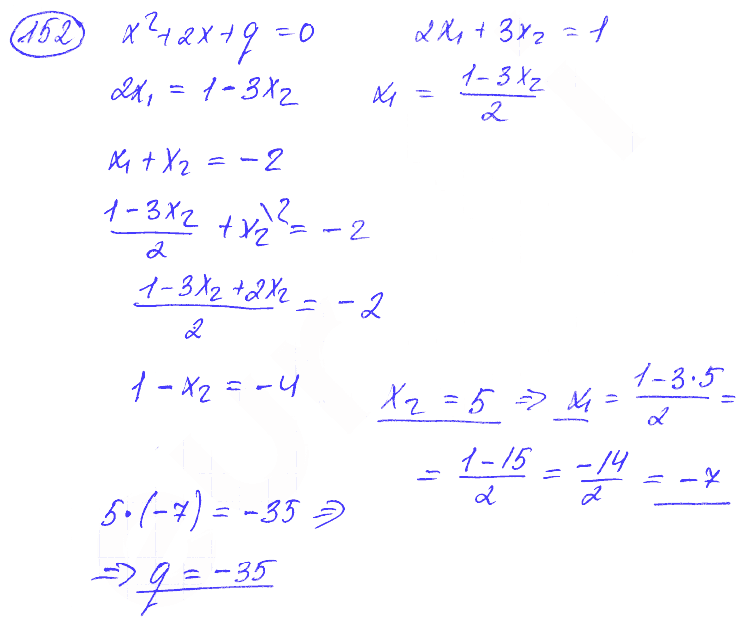 152 x²+2x+q=0 2x₁+3x₂=1
2x₁=1-3x₂ x₁=(1-3x₂)/2
x₁+x₂=-2
(1-3x₂)/2+x₂\2=-2
(1-3x₂+2x₂)/2=-2
1-x₂=-4
x₂=5 ⇒ x₁=(1-3·5)/2=
=(1-15)/2=-14/2=-7
5·(-7)=-35 ⇒
⇒ q=-35